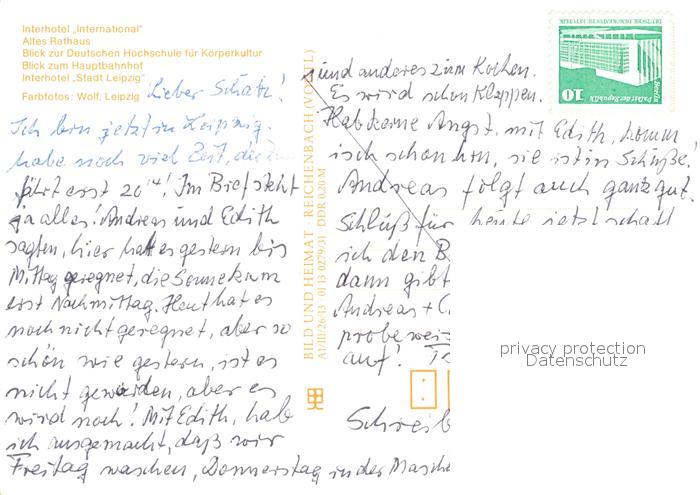 Interhotel „International"
Altes Rathaus
Blick zur Deutschen Hochschule für Körperkultur
Blick zum Hauptbahnhof
Interhotel „Stadt Leipzig"
Farbfotos: Wolf, Leipzig
Lieber Schatz!
Ich bin jetzt in Leipzig.
habe noch viel Zeit, die
fährt erst 20¹⁴! Im Brief steht
ja alles! Andreas und Edith
sagten, hier hat es gestern bis
Mittag geregnet, die Sonne kam
erst Nachmittag. Heut hat es
noch nicht geregnet, aber so
schön wie gestern, ist es
nicht geworden, aber es
wird noch! Mit Edith, hab
ich ausgemacht, daß wir
Freitag waschen, Donnerstag in der Masche
BILD UND HEIMAT REICHENBACH (VOGTL)
A1/III/26/13 01 13 0279/31 DDR 0,20 M
und anderes zum Kochen.
Es wird schon klappen.
Hab keine Angst. mit Edith, komm
isch schon hin, sie ist in Schuße!
Andreas folgt auch ganz gut.
Schluß für heute jetzt schaff
ich den B
dann gibt
Andreas + C
probe weis
auf!
Schreib
10
Palast der Republik
Berlin
DEUTSCHE DEMOKRATISCHE REPUBLIK
privacy protection
Datenschutz